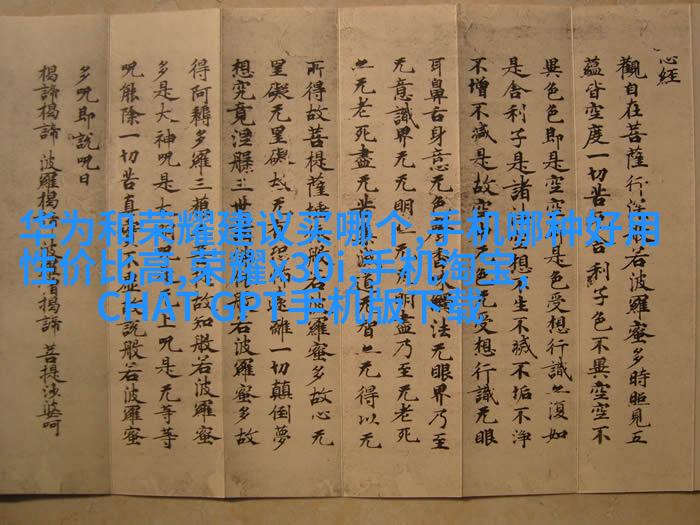 华为和荣耀建议买哪个,手机哪种好用
性价比高,荣耀x30i 手机淘宝,
CHAT GPT手机版下载
心经
觀自在菩薩行深般若波羅蜜多時照見五
蘊皆空度一切苦厄舍利子色不異空空不
異色色即是空空即是色受想行識亦復如
是舍利子是諸法空想不生不滅不垢不淨
不增不减是故空中无色无受想行識无眼
耳鼻舌身意无色聲香味觸法无眼界乃至
无意識界无无明亦无无明盡乃至无老死
亦无老死盡无苦集滅道无智亦无得以无
所得故菩提薩埵依般若波羅蜜多故心无
罣礙无罣礙故无有恐怖遠離一切顛倒夢
想究竟涅槃三世諸佛依般若波羅蜜多故
得阿耨多羅三藐三菩提故知般若波羅蜜
多是大神呪是大明呪是无上呪是无等等
呪能除一切苦真實不虛故說般若波羅蜜
多呪即說呪曰
揭諦揭諦 波羅揭諦 波羅僧揭諦 菩提薩婆呵